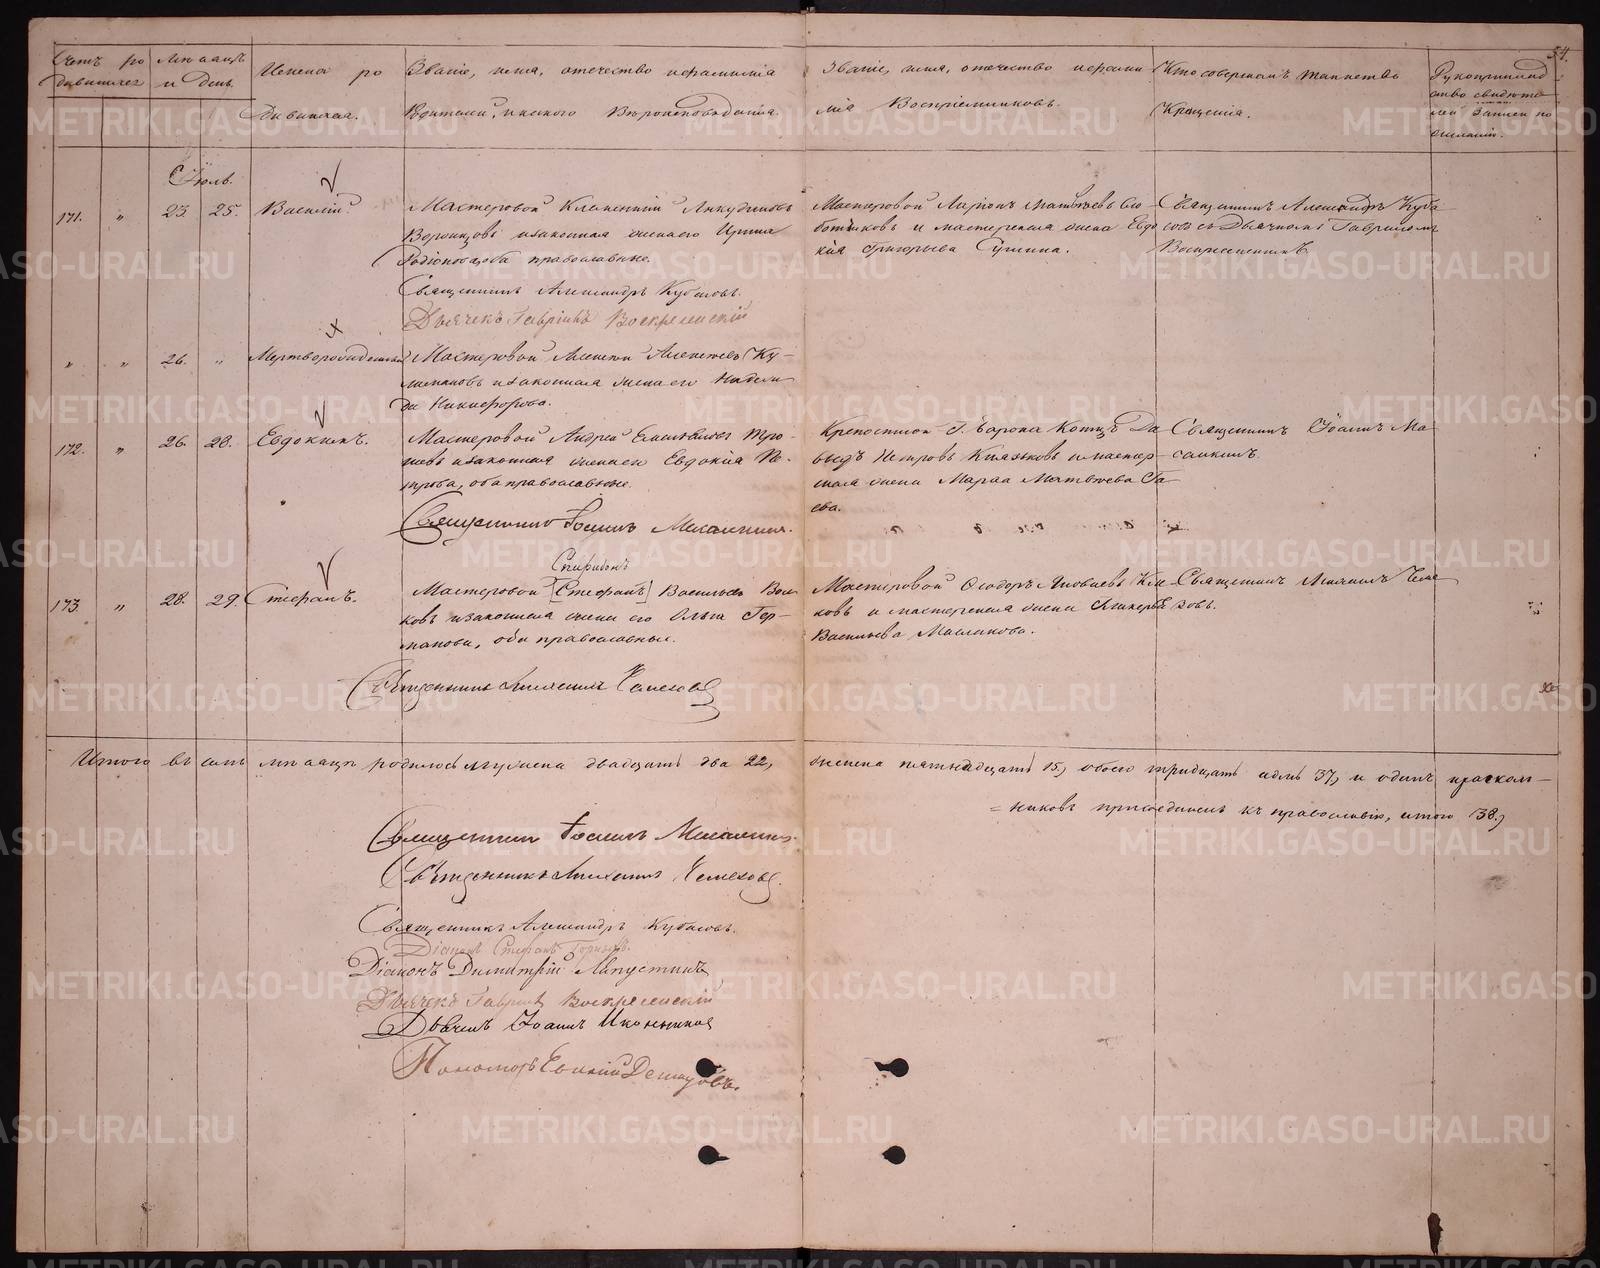 54.
Счетъ ро
дившихся
Мѣсяцъ
и день.
Имена ро
дившихся.
Званіе, имя, отечество и фамилія
Родителей, и какого Вѣроисповѣданія.
Званіе, имя, отечество и фами
лія Воспріемниковъ.
Кто совершалъ таинство
Крещенія.
Рукоприклад
ство свидѣте
лей записи по
желанію.
Іюль.
171. " 23. 25. Василій.
Мастеровой Климентій Анкудиновъ
Воронцовъ и законная жена его Ирина
Родіонова, оба православные.
Священникъ Александръ Кубасовъ.
Дьячекъ Гавріилъ Воскресенскій
Мастеровой Ларіонъ Матвѣевъ Сло
ботчиковъ и мастерская жена Евдо
кія Григорьева
Священникъ Александръ Куба
совъ съ Дьячкомъ Гавріиломъ
Воскресенскимъ.
" " 26. " Мертворожденный
Мастеровой Алексѣй Алексѣевъ
и законная жена его Надеж
да Никифорова.
172. " 26. 28. Евдокимъ.
Мастеровой Андрей Емельяновъ Тро
и законная жена его Евдокія Пе-
трова, оба православные.
Священникъ Іоаннъ
Крепостной Г. Барона Котцъ Да
выдъ Петровъ Князьковъ и мастер-
ская жена Марѳа Матвѣева Га
ева.
Священникъ Іоаннъ
173 " 28. 29. Стефанъ.
Спиридонъ
Мастеровой [Стефанъ] Васильевъ Вол
ковъ и законная жена его Ольга Гер-
манова, оба православные.
Священникъ
Мастеровой Ѳеодоръ Яковлевъ
ковъ и мастерская жена Гликерія
Васильева Маслакова.
Священникъ
Итого въ семъ мѣсяцѣ родилось мужеска двадцать два 22, женска пятнадцать 15, обоего тридцать семь 37, и одинъ изъ раскол-
= никовъ присоединенъ къ православію, итого 38,
Священникъ Іоаннъ
Священникъ
Священникъ Александръ Кубасовъ.
Діаконъ Стефанъ
Діаконъ Димитрій Лапустинъ
Дьячекъ Гавріилъ Воскресенскій
Дьячекъ Іоаннъ Иконниковъ
Пономарь Евгеній
METRIKI.GASO-URAL.RU